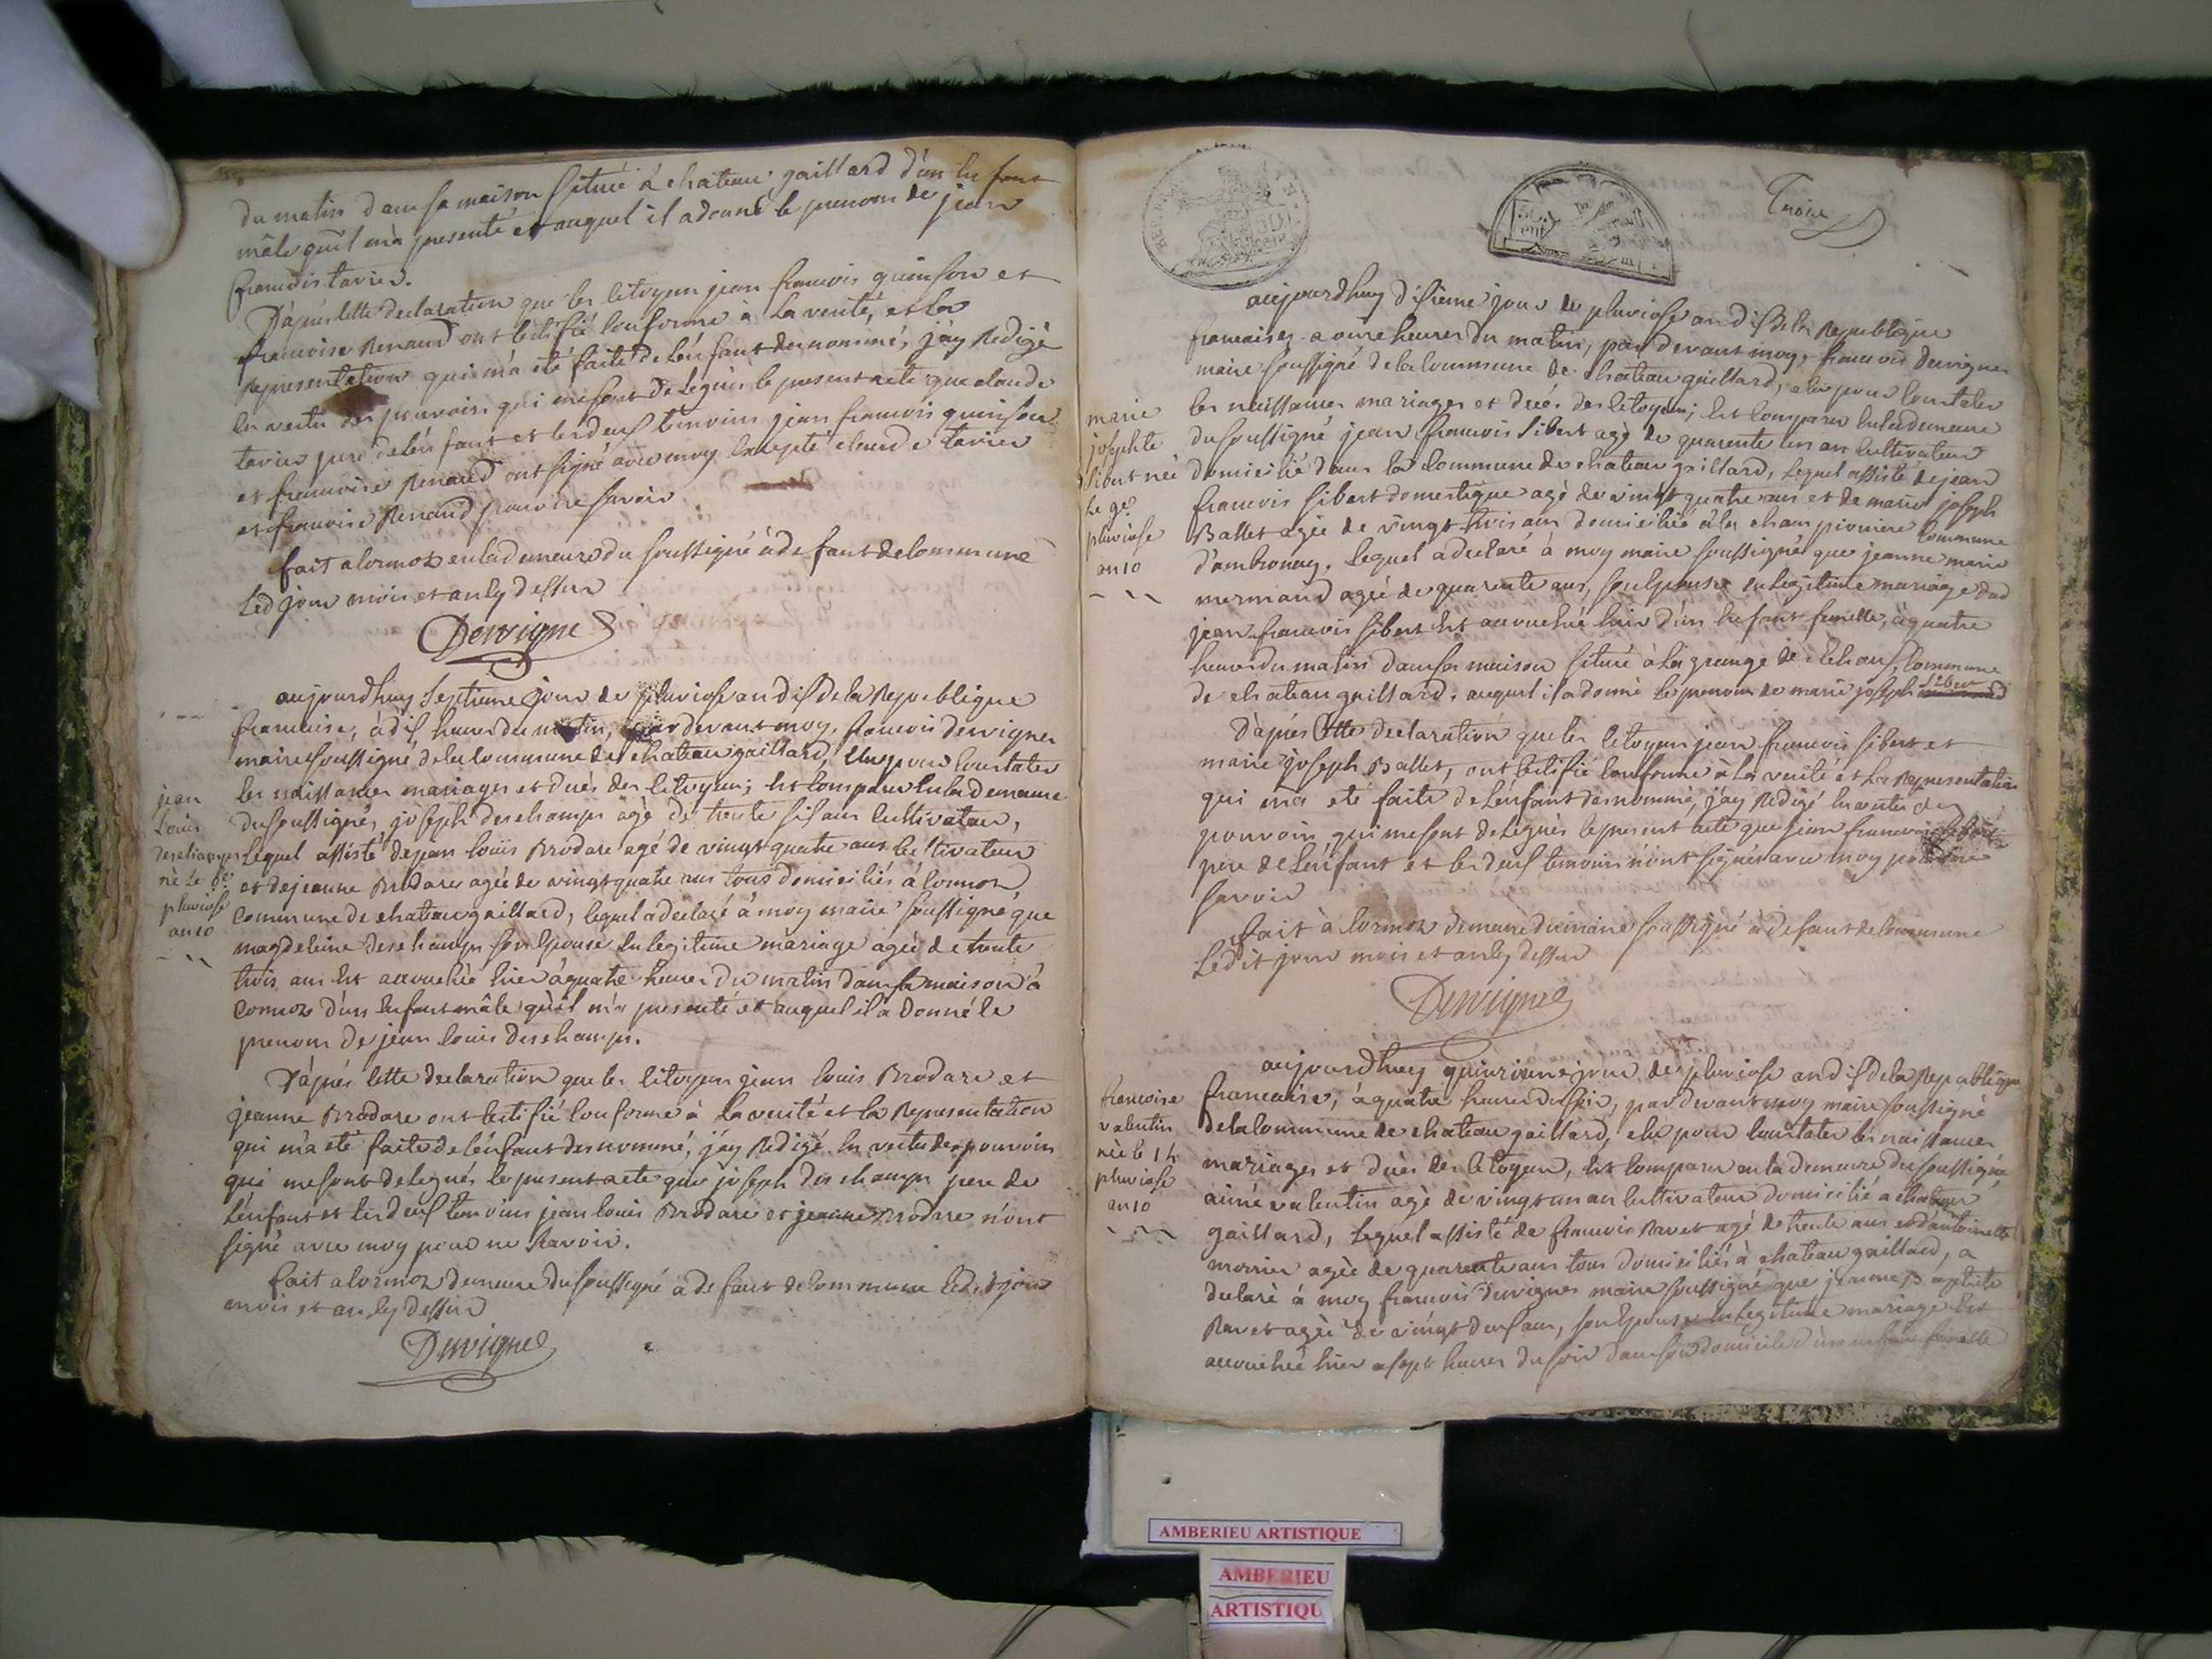 du matin dans sa maison située à chateau gaillard d'un enfant
mâle qu'il m'a presenté et auquel il a donné le prenom de jean
francois tavier.
D'après cette declaration que les citoyens jean francois quinson et
francoise Renaud ont certifié conforme à la verité, et la
representation qui m'a été faite de l'enfant denommé, j'ay Redigé
en vertu des pouvoirs qui me sont delegués le present acte que claude
tavier pere de l'enfant et les deux temoins jean francois quinson
et francoise Renaud ont signé avec moy excepté claude tavier
et francoise Renaud pour ne savoir
fait a cormoz en la demeure du soussigné à defaut de commune
led jour mois et an cy dessus
Dervigne
aujourdhuy septieme jour de pluviose an dix de la Republique
francaise, à dix heures du matin, par devant moy, francois Dervigne
maire soussigné de la commune de chateau gaillard, elu pour constater
les naissances mariages et decés des citoyens; est comparu en la demeure
du soussigné, joseph deschamps agé de trente six ans cultivateur,
lequel assisté de jean louis Brodare agé de vingt quatre ans cultivateur
et de jeanne Brodare agée de vingt quatre ans tous domiciliés à cormoz
commune de chateau gaillard, lequel a declaré à moy maire soussigné que
magdeleine deschamps son epouse en legitime mariage agée de trente
trois ans est accouchée hier à quatre heures du matin dans sa maison à
cormoz d'un enfant mâle qu'il m'a presenté et auquel il a donné le
prenom de jean louis deschamps.
jean
louis
deschamps
né le 6e
pluviose
an 10
D'après cette declaration que les citoyens jean louis Brodare et
jeanne Brodare ont certifié conforme à la verité et la Representation
qui m'a été faite de l'enfant denommé, j'ay Redigé en vertu des pouvoirs
qui me sont delegués le present acte que joseph deschamps pere de
l'enfant et les deux temoins jean louis Brodare et jeanne Brodare n'ont
signé avec moy pour ne savoir.
fait a cormoz demeure du soussigné à defaut de commune ledit jour
mois et an cy dessus
Dervigne
Troie
aujourdhuy dixieme jour de pluviose an dix de la Republique
francaise, a onze heures du matin, par devant moy, francois Dervigne
maire soussigné de la commune de chateau gaillard, elu pour constater
les naissances mariages et decés des citoyens; est comparu en la demeure
du soussigné jean francois Sibert agé de quarente un an cultivateur
domicilié dans la commune de chateau gaillard, lequel assisté de jean
francois Sibert domestique agé de vingt quatre ans et de marie joseph
Ballet agée de vingt trois ans domiciliée à la championiere commune
d'ambronay. lequel a declaré à moy maire soussigné que jeanne marie
mermand agée de quarente ans, son epouse en legitime mariage dud
jean francois Sibert est accouchée hier d'un enfant femelle, à quatre
heures du matin dans sa maison située à la grange commune
de chateau gaillard. auquel il a donné le prenom de marie joseph Siber
marie
josephte
Sibert née
le 9e
pluviose
an 10
D'après cette declaration que les citoyens jean francois Sibert et
marie joseph Ballet, ont certifié conforme à la verité et la Representation
qui m'a été faite de l'enfant denommé, j'ay Redigé en vertu des
pouvoirs qui me sont delegués le present acte que jean francois Sibert
pere de l'enfant et les deux temoins n'ont signés avec moy pour ne
savoir
fait à cormoz demeure du maire soussigné à defaut de commune
ledit jour mois et an cy dessus
Dervigne
aujourdhuy quinzieme jour de pluviose an dix de la Republique
francaise, à quatre heures du soir, par devant moy maire soussigné
de la commune de chateau gaillard, elu pour constater les naissances
mariages et decés des citoyens, est comparu en la demeure du soussigné
aimé valentin agé de vingt un an cultivateur domicilié a chateau
gaillard, lequel assisté de francois Ravet agé de trente ans et d'antoinette
morrier agée de quarente ans tous domiciliés à chateau gaillard, a
declaré à moy francois Dervigne maire soussigné que jeanne baptiste
Ravet agée de vingt deux ans, son epouse en legitime mariage est
accouchée hier a sept heures du soir dans son domicile d'un enfant femelle
francoise
valentin
née le 14
pluviose
an 10
AMBERIEU ARTISTIQUE
AMBERIEU
ARTISTIQU